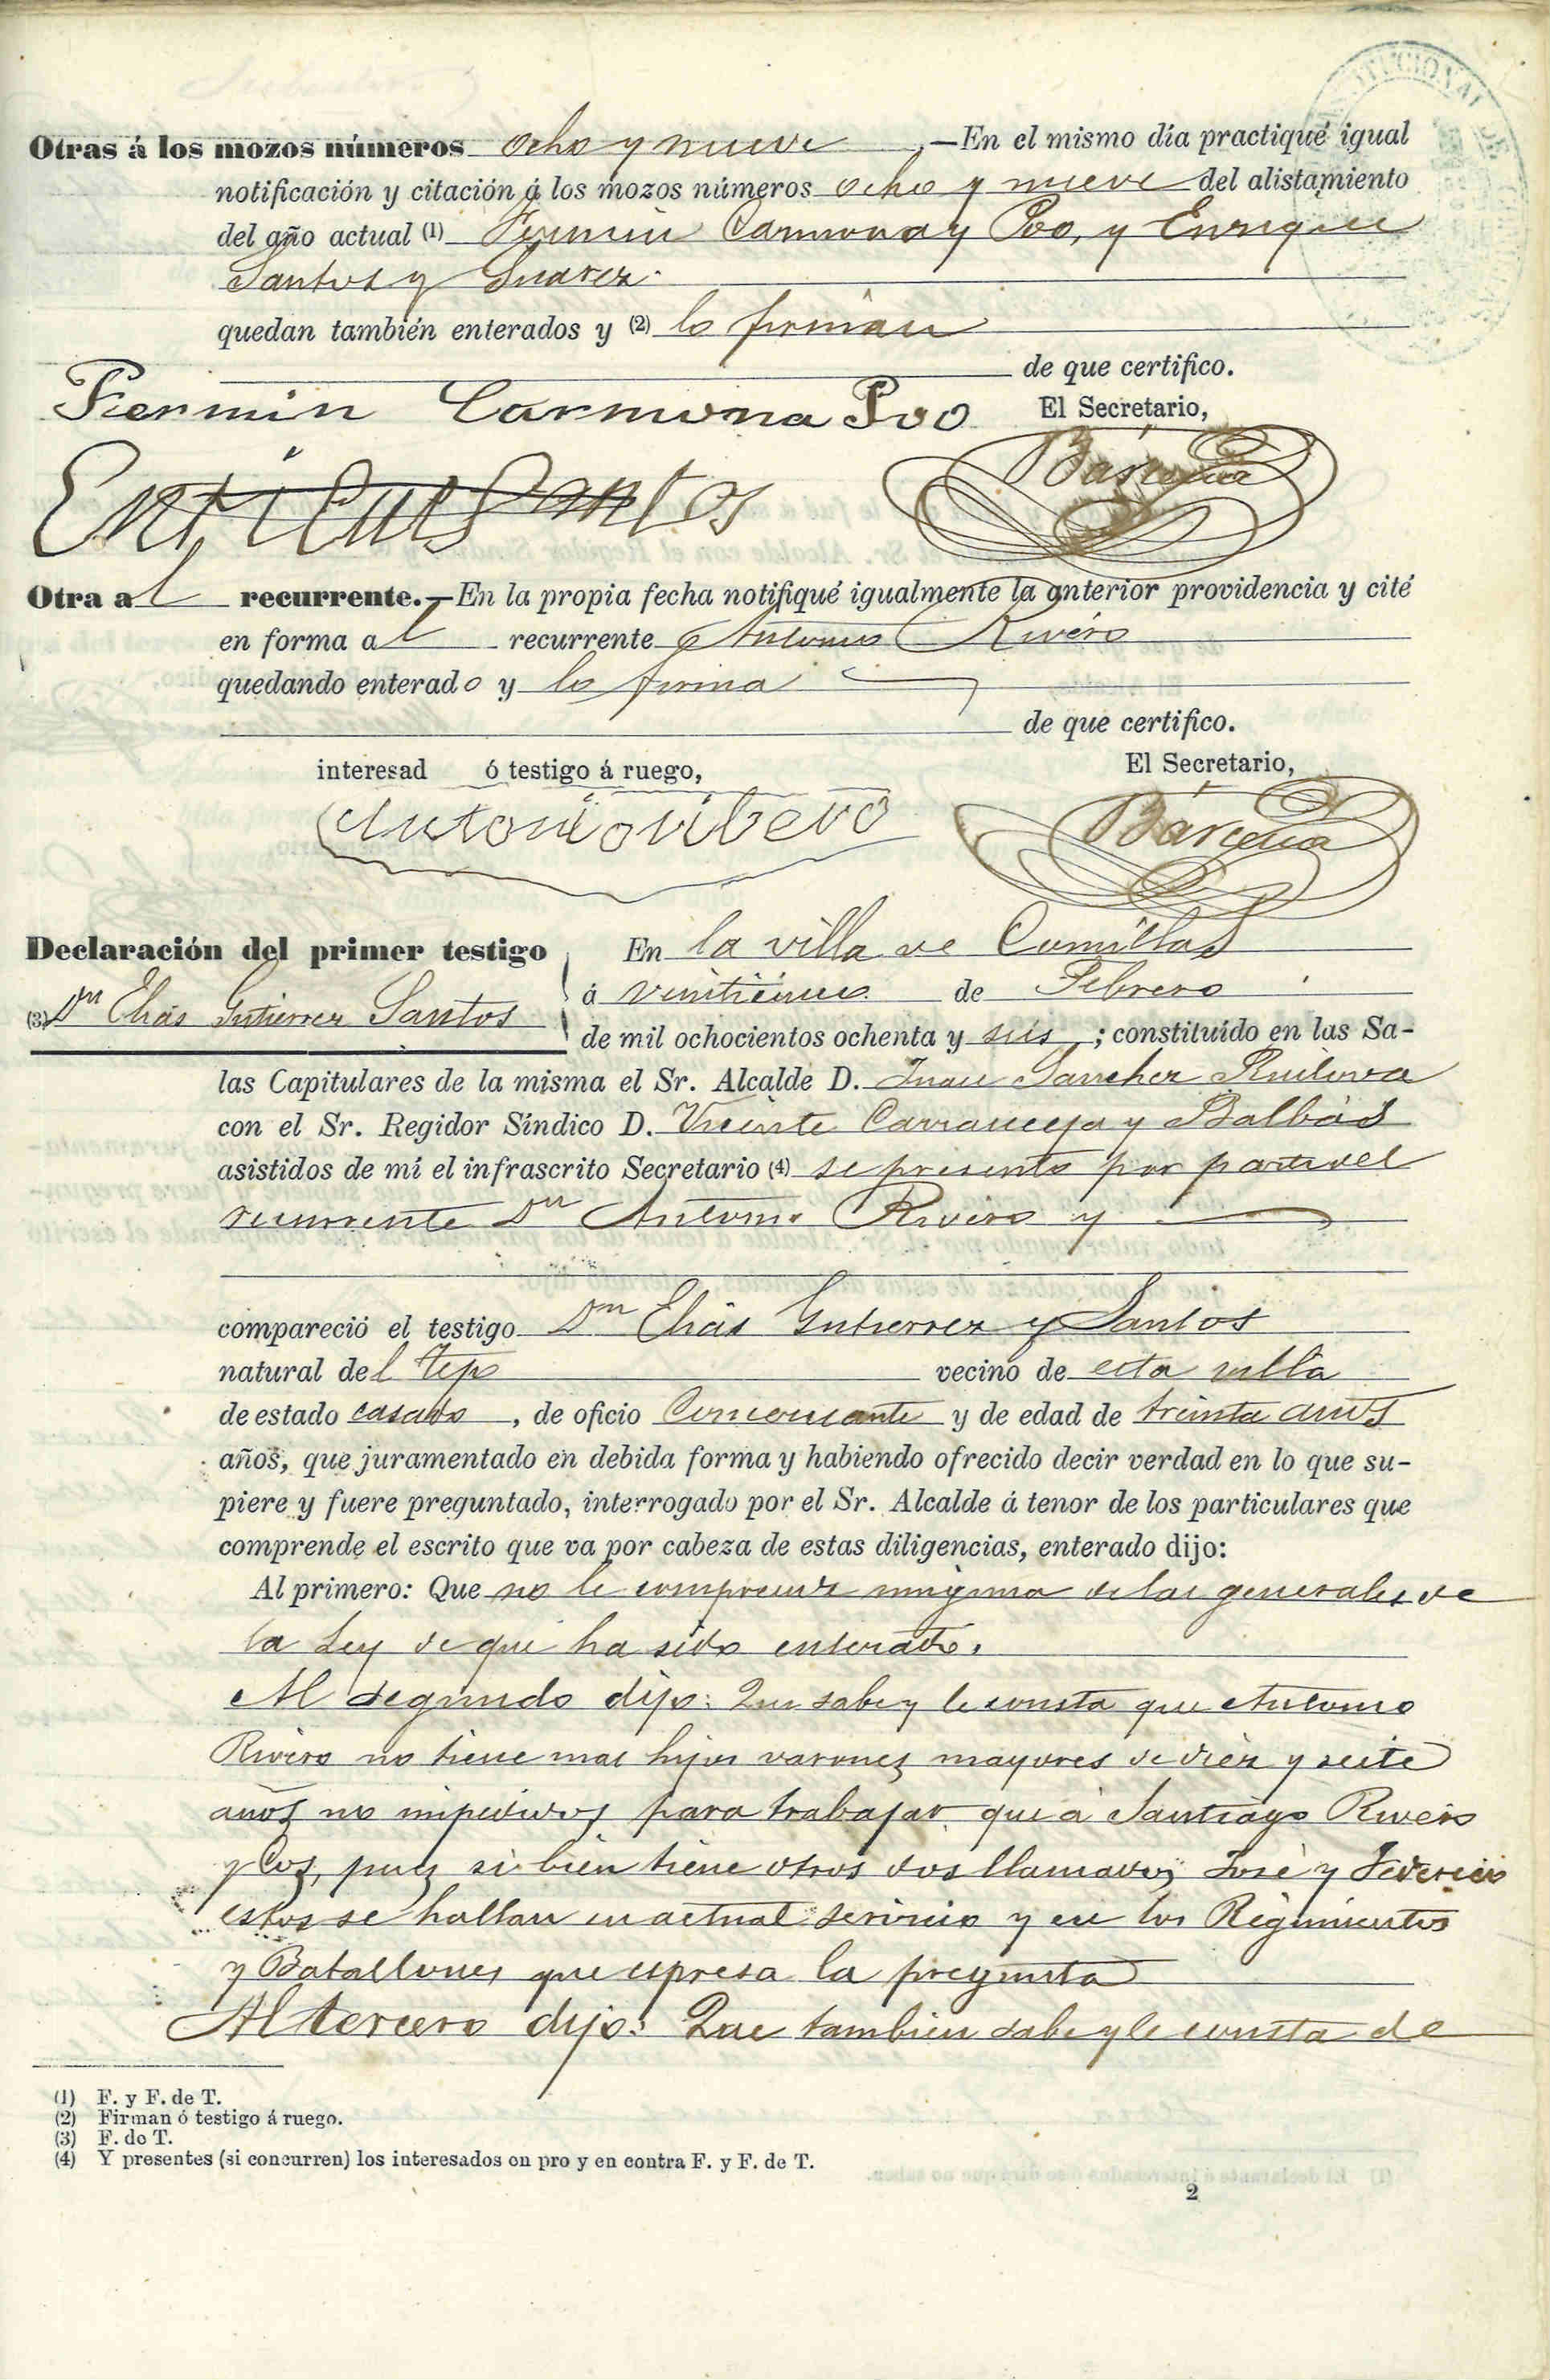 Otras á los mozos números ocho y nueve ,—En el mismo día practiqué igual
notificación y citación á los mozos números ocho y nueve del alistamiento
del año actual (1) Fermin Carmona y Poo, y Enrique
Santos y Suarez.
quedan también enterados y (2) lo firman
de que certifico.
Fiermin Carmona Poo El Secretario,
Enrique Santos Bárcena
Otra al recurrente.—En la propia fecha notifiqué igualmente la anterior providencia y cité
en forma al recurrente Antonio Rivero
quedando enterado y lo firma
de que certifico.
interesad ó testigo á ruego, El Secretario,
Antonio ribero Bárcena
Declaración del primer testigo En la villa de Comillas
(3) Dn Elias Gutierrez Santos á veintiuno de Febrero
de mil ochocientos ochenta y seis ; constituído en las Sa-
las Capitulares de la misma el Sr. Alcalde D. Juan Sanchez Ruilova
con el Sr. Regidor Síndico D. Vicente Carranceja y Balbás
asistidos de mí el infrascrito Secretario (4) se presento por parte del
recurrente Dn Antonio Rivero y
compareció el testigo Dn Elias Gutierrez y Santos
natural del Tejo vecino de esta villa
de estado casado , de oficio Comerciante y de edad de treinta años
años, que juramentado en debida forma y habiendo ofrecido decir verdad en lo que su-
piere y fuere preguntado, interrogado por el Sr. Alcalde á tenor de los particulares que
comprende el escrito que va por cabeza de estas diligencias, enterado dijo:
Al primero: Que no le comprende ninguna de las generales de
la Ley de que ha sido enterado.
Al segundo dijo: Que sabe y le consta que Antonio
Rivero no tiene mas hijos varones mayores de diez y seite
años no impedidos para trabajar que á Santiago Rivero
y Cos, pues si bien tiene otros dos llamados José y Federico
estos se hallan en actual servicio y en los Regimientos
y Batallones que espresa la pregunta
Al tercero dijo: Que tambien sabe y le consta de
(1) F. y F. de T.
(2) Firman ó testigo á ruego.
(3) F. de T.
(4) Y presentes (si concurren) los interesados en pro y en contra F. y F. de T.
2